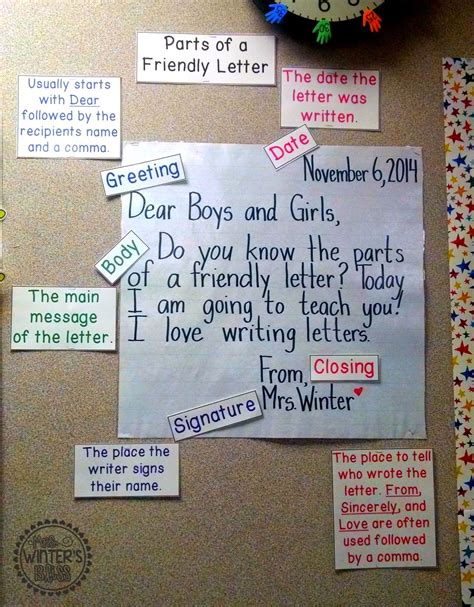 Parts of a
Friendly Letter
Usually starts
with Dear
followed by the
recipients name
and a comma.
The date the
letter was
written.
Date
Greeting
November 6, 2014
Dear Boys and Girls,
Body
Do you know the parts
of a friendly letter? Today
I am going to teach you!
I love writing letters.
The main
message
of the letter.
From,
Closing
Mrs. Winter
Signature
The place the
writer signs
their name.
The place to tell
who wrote the
letter. From,
Sincerely, and
Love are often
used followed
by a comma.
Mrs.
WINTER'S
BLISS